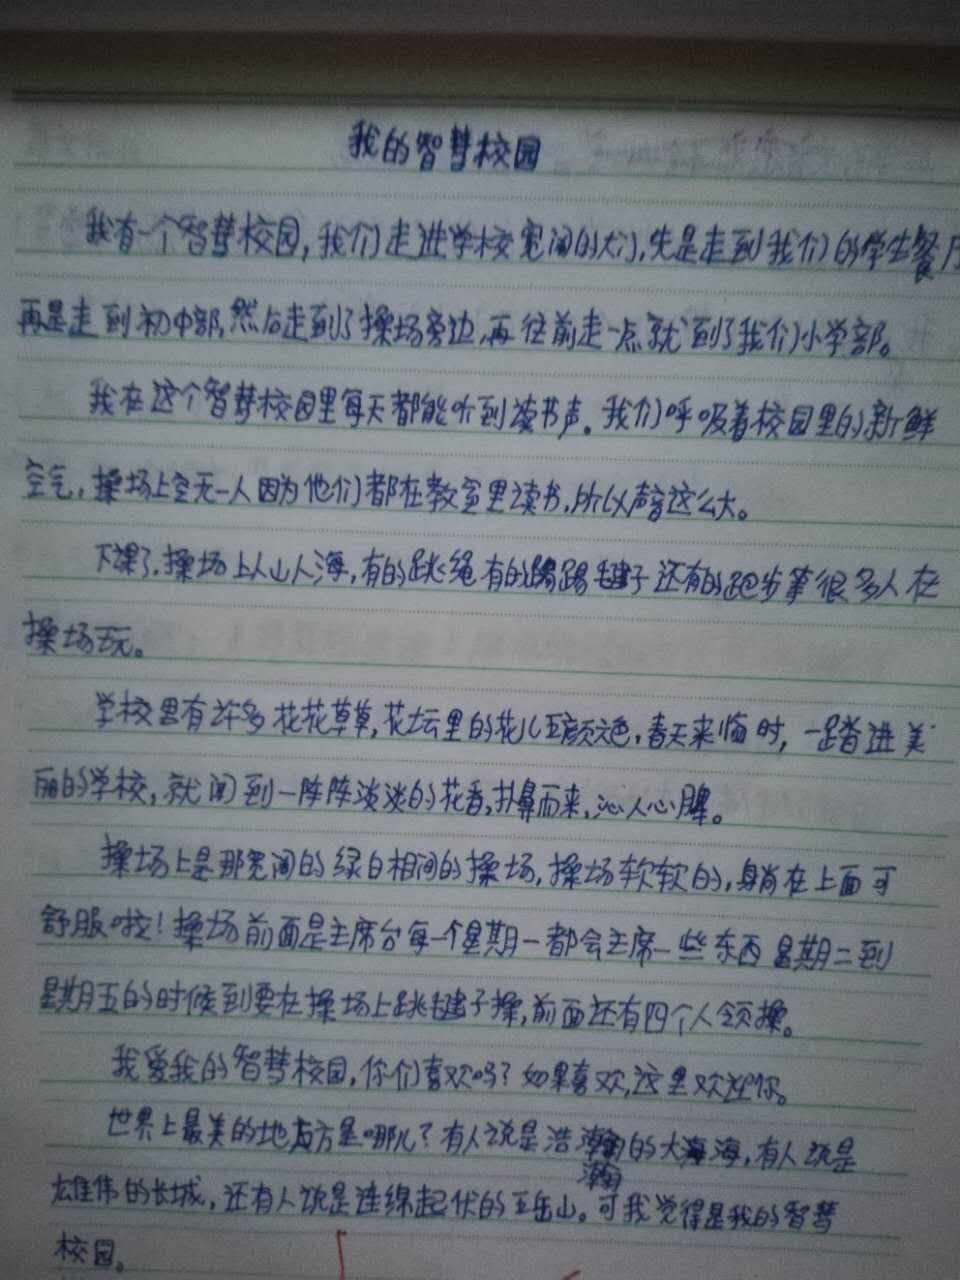 我的智慧校园
我有一个智慧校园,我们走进学校宽阔的大门,先是走到我们的学生餐厅
再是走到初中部,然后走到了操场旁边,再往前走一点就到了我们小学部。
我在这个智慧校园里每天都能听到读书声。我们呼吸着校园里的新鲜
空气,操场上空无一人因为他们都在教室里读书,所以声音这么大。
下课了,操场上人山人海,有的跳绳有的踢毽子还有的跑步等很多人在
操场玩。
学校里有许多花花草草,花坛里的花儿五颜六色,春天来临时,一踏进美
丽的学校,就闻到一阵阵淡淡的花香,扑鼻而来,沁人心脾。
操场上是那宽阔的绿白相间的操场,操场软软的,身尚在上面可
舒服啦!操场前面是主席台每一个星期一都会主席一些东西星期二到
星期五的时候到要在操场上跳毽子操,前面还有四个人领操。
我爱我的智慧校园,你们喜欢吗?如果喜欢,这里欢迎你。
世界上最美的地方是哪儿?有人说是浩瀚的大海,有人说是
雄伟的长城,还有人说是连绵起伏的五岳山。可我觉得是我的智慧
校园。